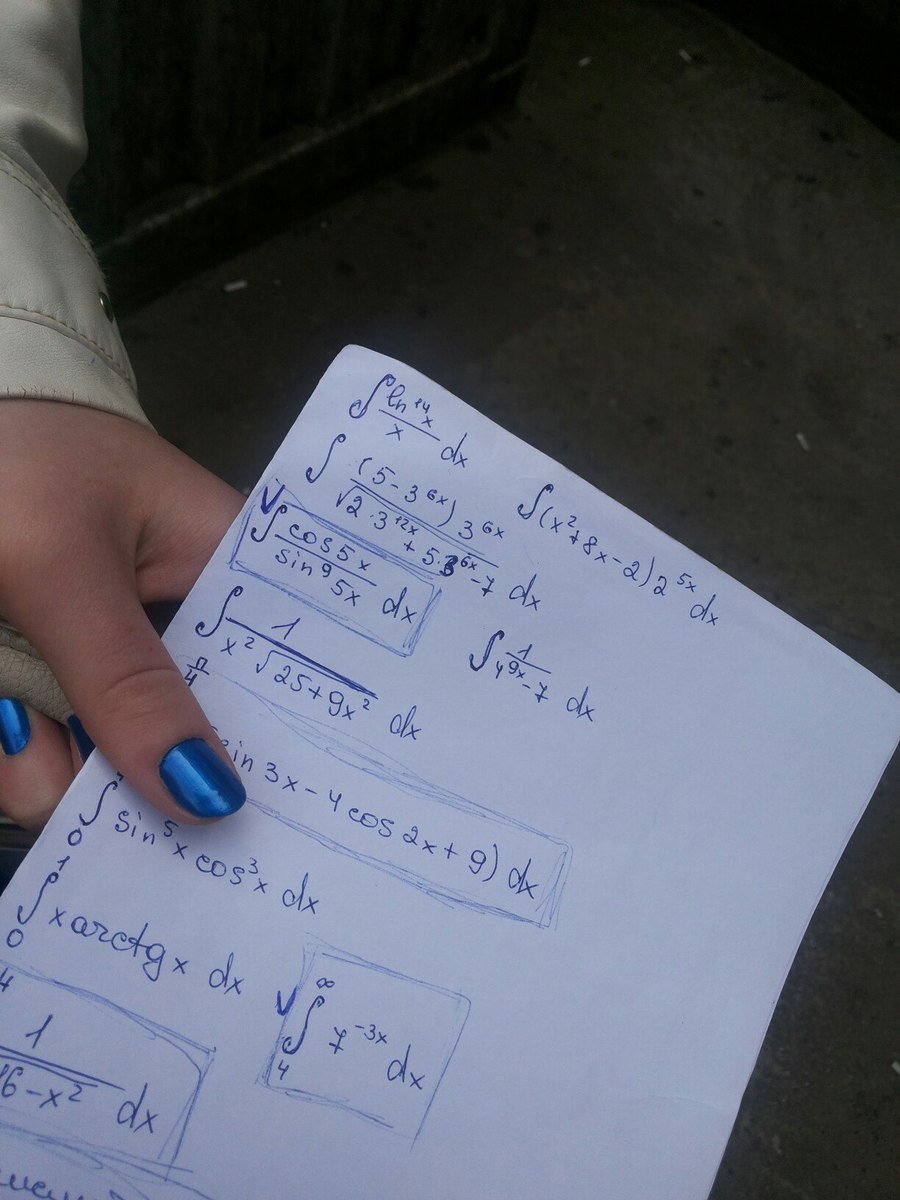 ∫ ln¹⁴x / x dx
∫ (5-3⁶ˣ)3⁶ˣ / √(2·3¹²ˣ+5·3⁶ˣ-7) dx
∫(x²+8x-2)2⁵ˣ dx
V ∫ cos5x / sin⁹5x dx
∫ 1 / x²√(25+9x²) dx
∫ 1 / 4⁹ˣ-7 dx
π/4
sin 3x-4cos2x+9) dx
∫₀ sin⁵x cos³x dx
∫₀¹ x arctg x dx
V ∫₄^∞ 7⁻³ˣ dx
4
1 / 16-x² dx